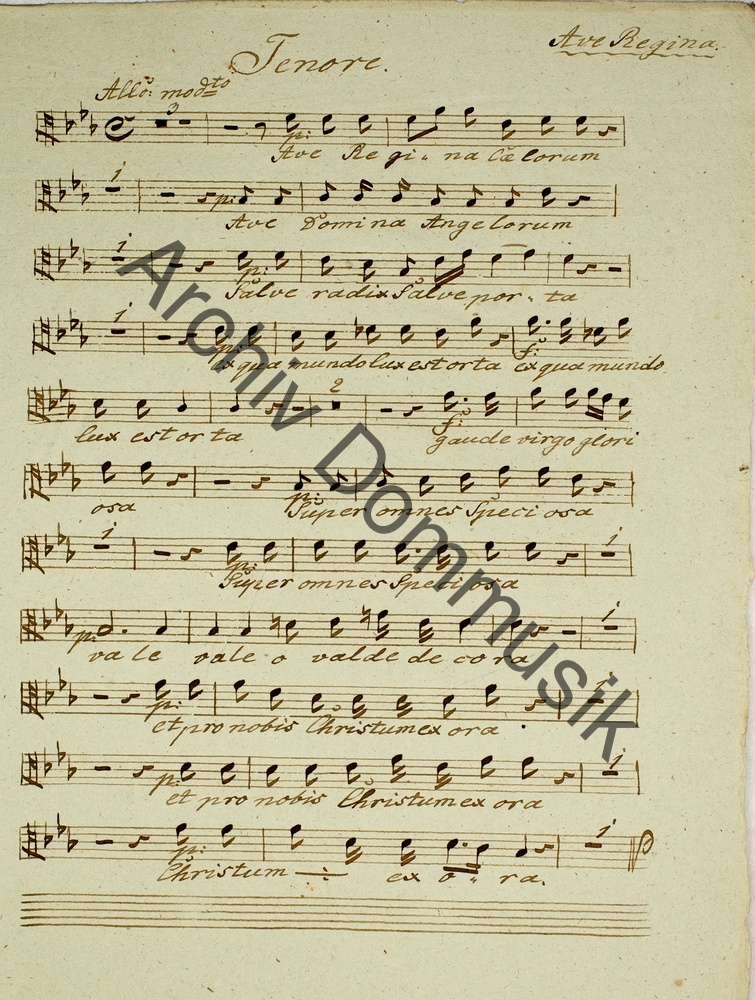 Ave Regina.
Tenore.
Allo: modto
3
p:
Ave Regi - na Cælorum
1
p:
Ave Domina Angelorum
1
p:
Salve radix Salve por - ta
1
p: f:
ex qua mundo lux est orta ex qua mundo
2
f:
lux est orta gaude virgo glori
p:
osa Super omnes Speciosa
1 1
p:
Super omnes Speciosa
1
p:
vale vale o valde decora
1
p:
et pro nobis Christum ex ora
1
p:
et pro nobis Christum ex ora
1
p:
Christum ex o - ra.
Archiv Dommusik